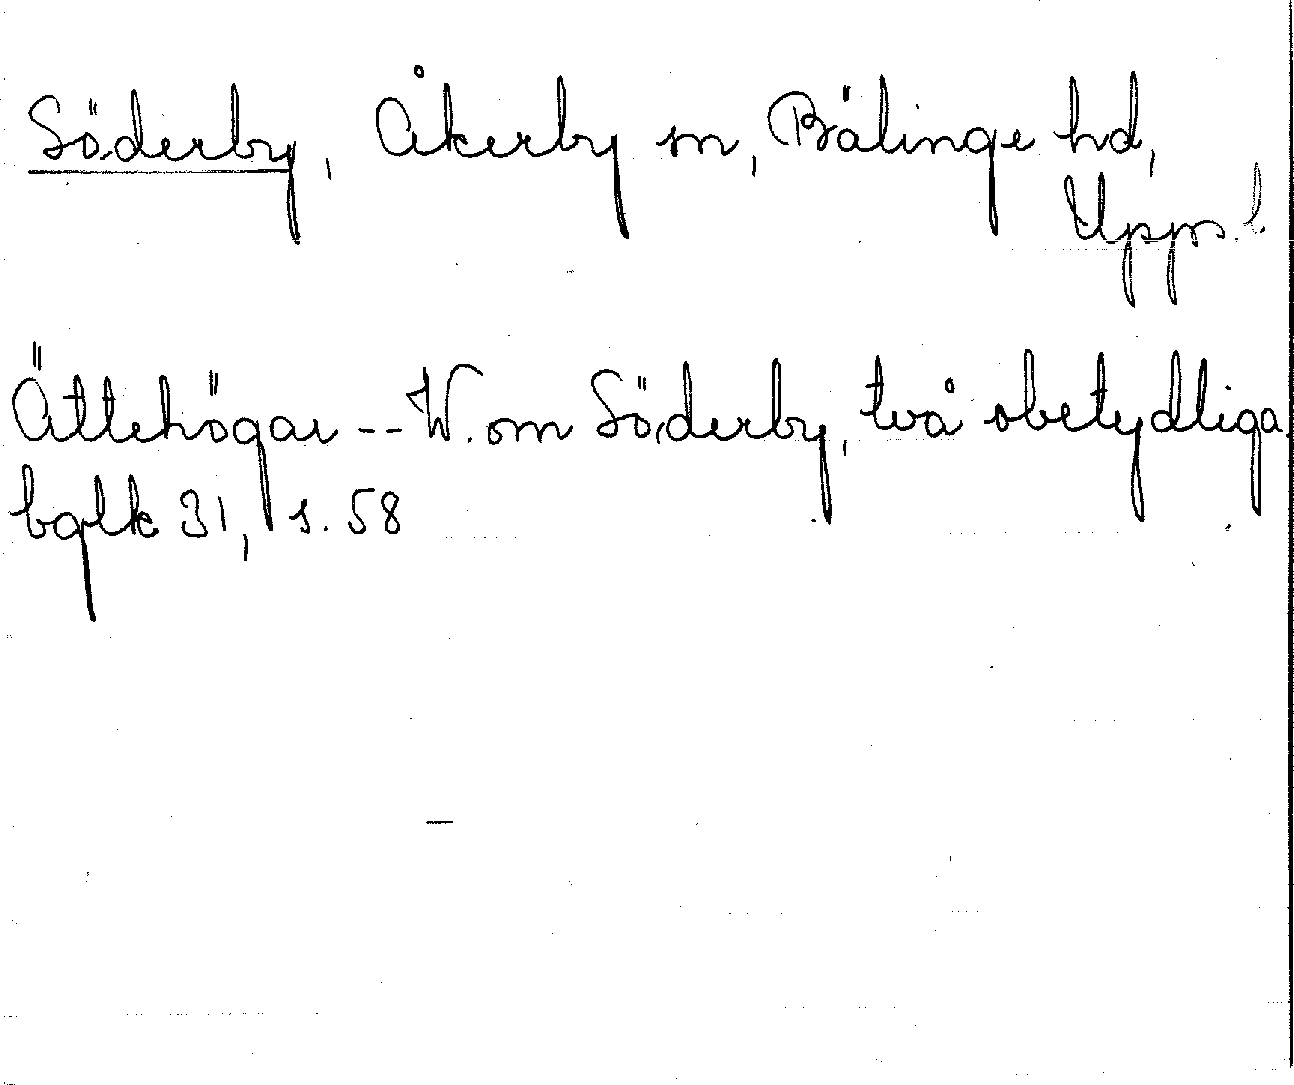 Söderby, Åkerby sn, Bälinge hd,
Upps. l.
Ättehögar -- W. om Söderby, två obetydliga.
bglk 31, s. 58